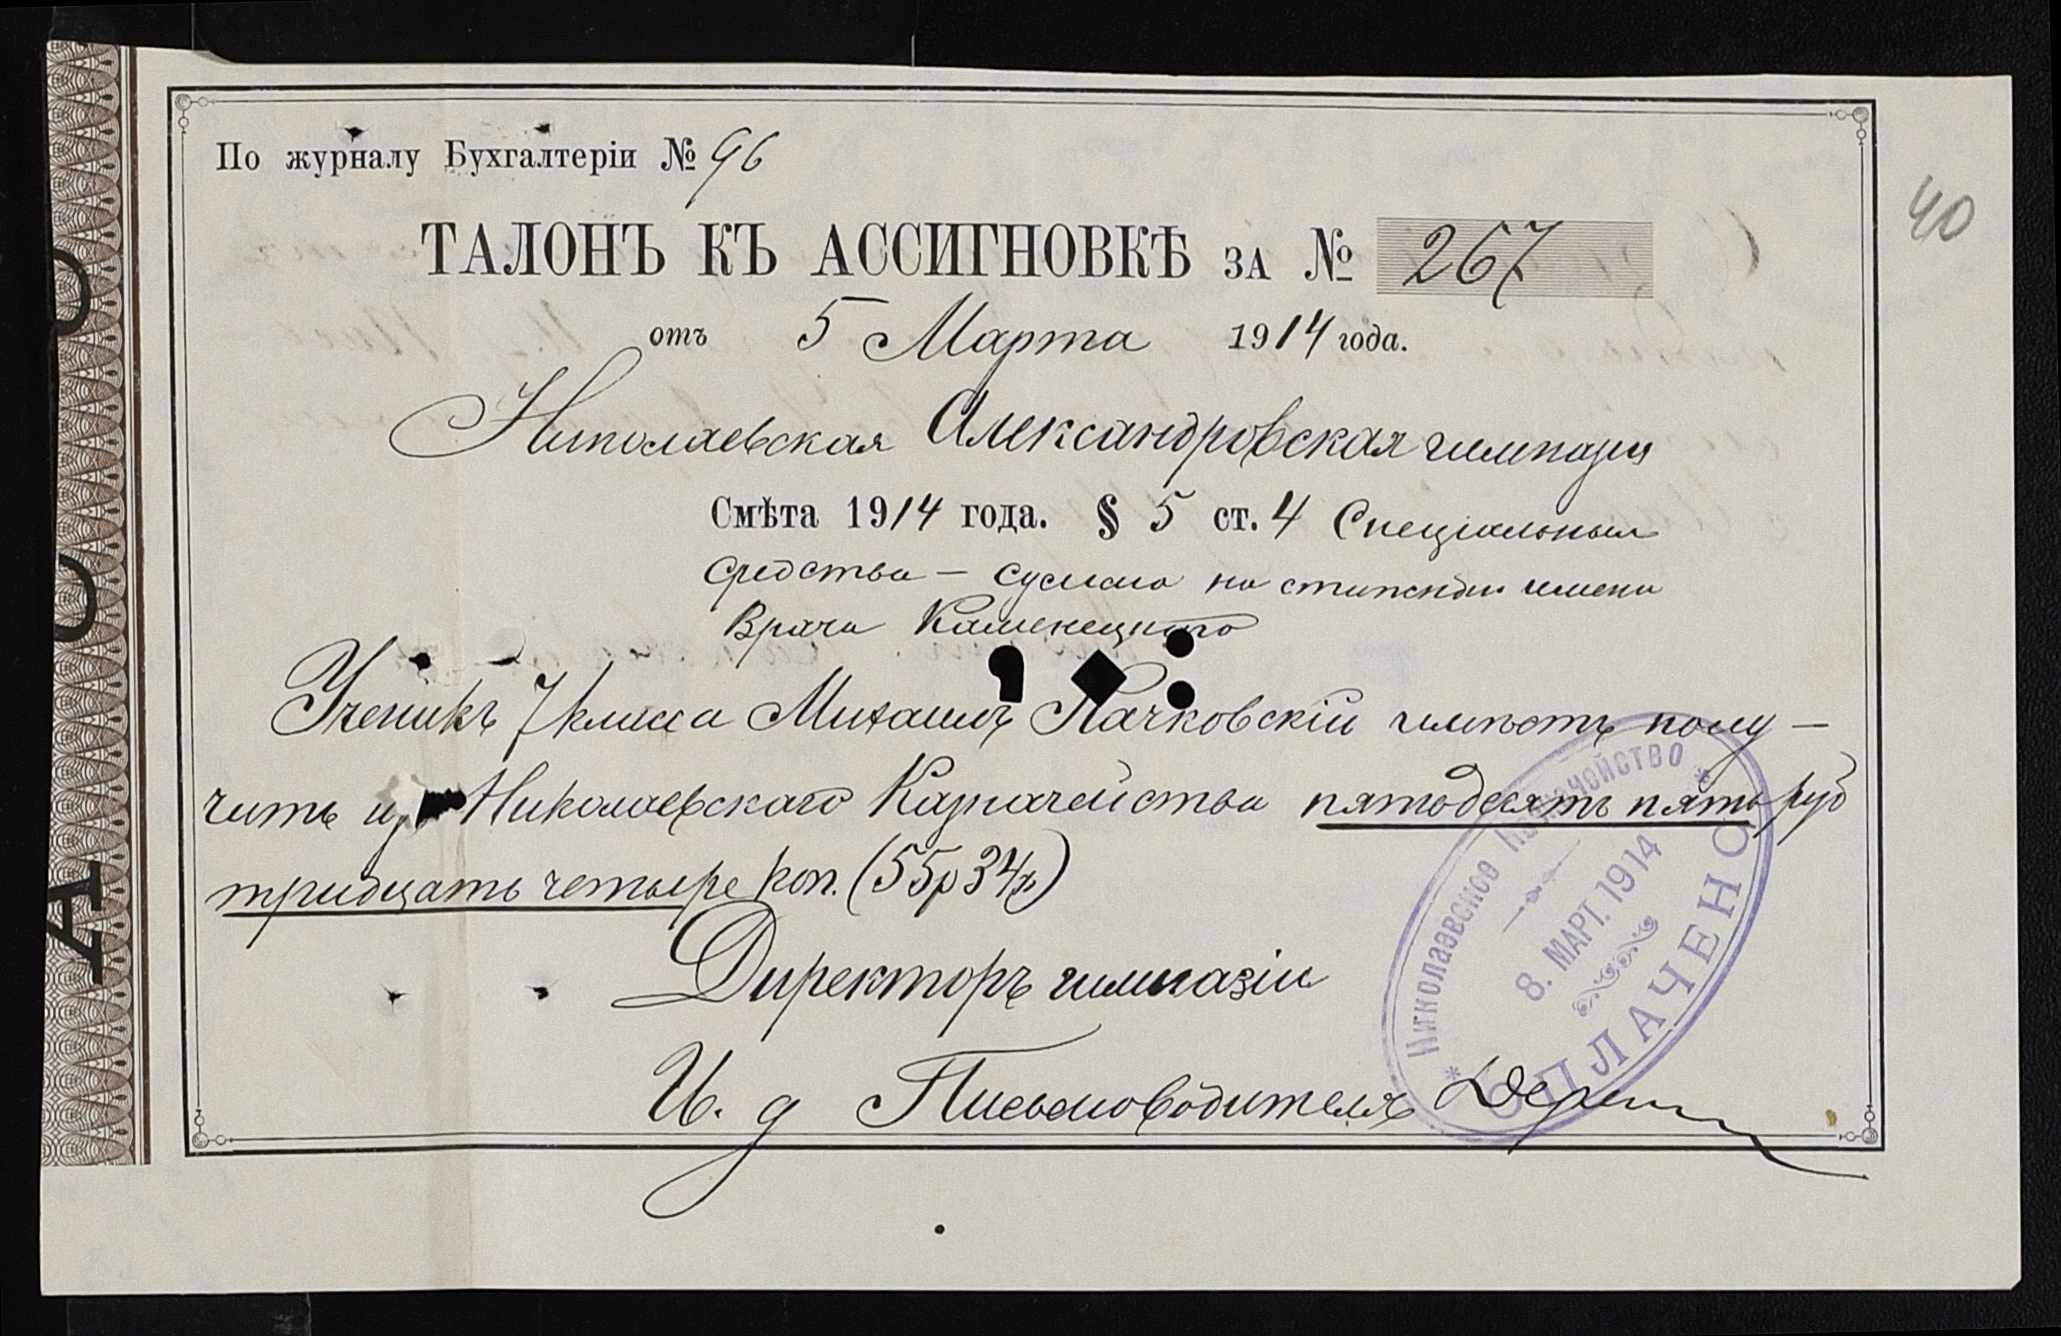 По журналу Бухгалтеріи № 96
40
ТАЛОНЪ КЪ АССИГНОВКѢ ЗА № 267
отъ 5 Марта 1914 года.
Николаевская Александровская гимназія
Смѣта 1914 года. § 5 ст. 4 Спеціальныя
средства – сумма на стипендіи имени
Врача Каменецкого
Ученикъ 7 класса Михаилъ Пачковскій имѣетъ полу–
чить изъ Николаевскаго Казначейства пятьдесятъ пять руб
тридцать четыре коп. (55р 34к)
Директоръ гимназіи
И. д Письмоводителя
Николаевское Казначейство
8. МАРТ. 1914
ОПЛАЧЕНО